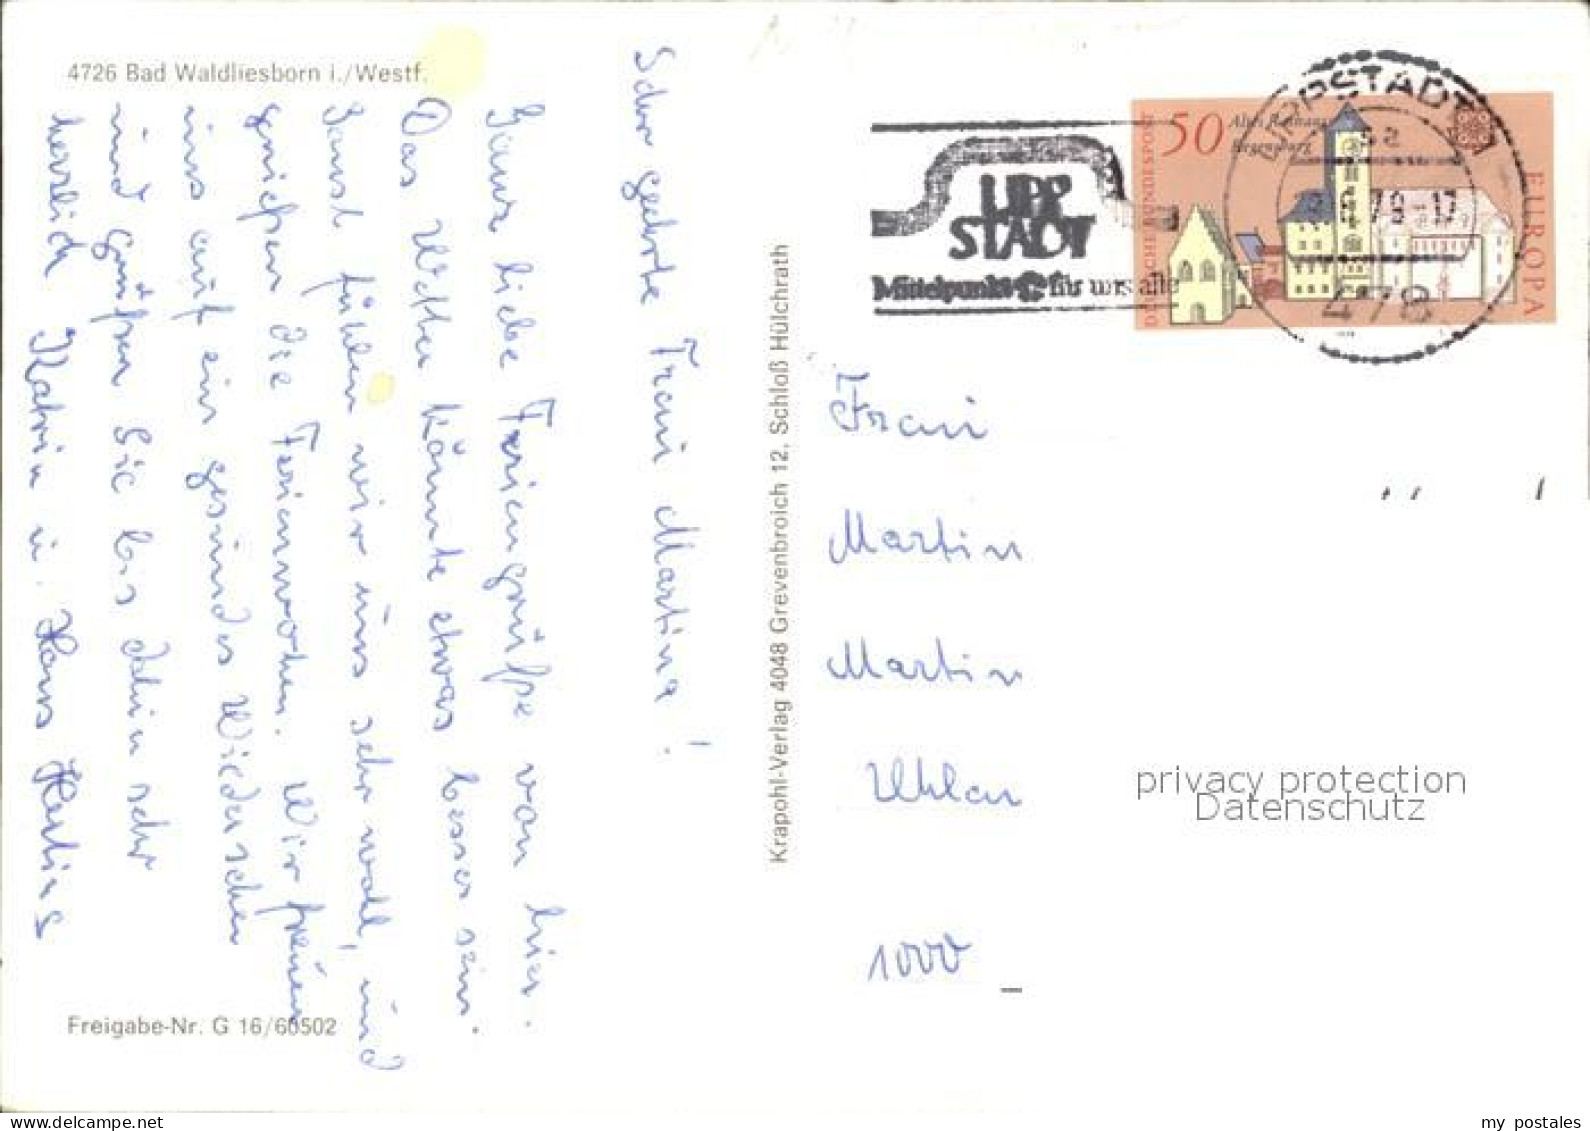 4726 Bad Waldliesborn i./Westf.
Sehr geehrte Frau Martina!
Ganz liebe Feriengrüße von hier.
Das Wetter könnte etwas besser sein.
Sonst fühlen wir uns sehr wohl, und
genießen die Ferienwochen. Wir freuen
uns auf ein gesundes Wiedersehen
und grüßen Sie bis dahin sehr
herzlich Katrin u. Hans
Freigabe-Nr. G 16/60502
Krapohl-Verlag 4048 Grevenbroich 12, Schloß Hülchrath
LIPP
STADT
Mittelpunkt für uns alle
DEUTSCHE BUNDESPOST
50
Altes Rathaus
Regensburg
EUROPA
LIPPSTADT
478
Frau
Martin
Martin
1000
privacy protection
Datenschutz
my postales